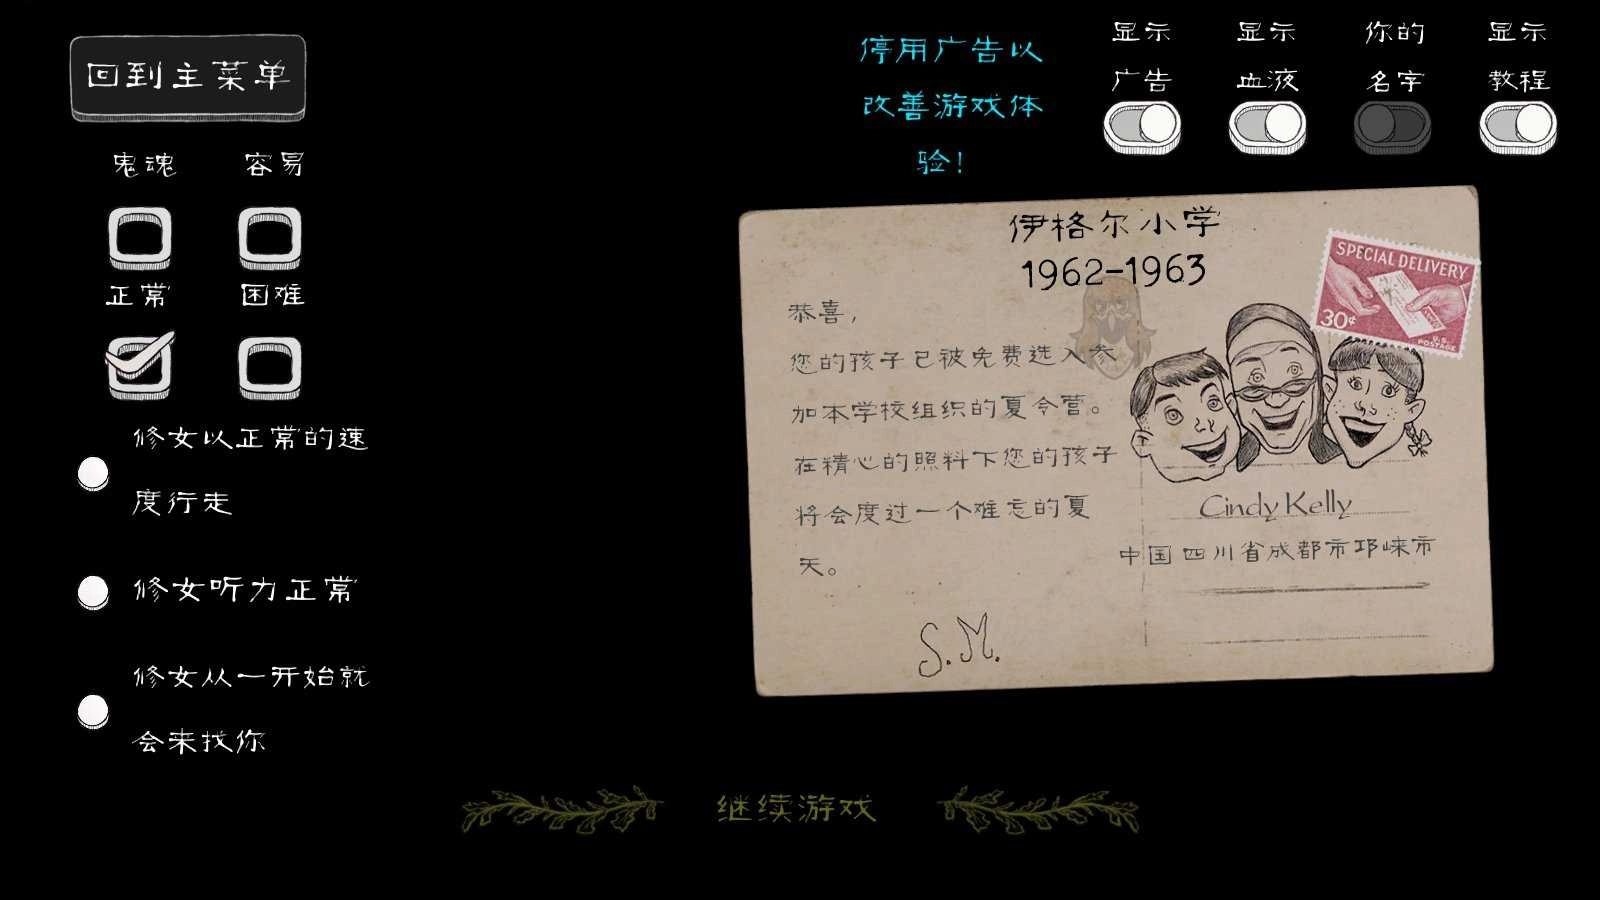 回到主菜单
停用广告以
改善游戏体
验！
显示
广告
显示
血液
你的
名字
显示
教程
鬼魂
容易
正常
困难
修女以正常的速
度行走
修女听力正常
修女从一开始就
会来找你
伊格尔小学
1962-1963
SPECIAL DELIVERY
30¢
U.S.
POSTAGE
恭喜，
您的孩子已被免费选入参
加本学校组织的夏令营。
在精心的照料下您的孩子
将会度过一个难忘的夏
天。
S.M.
Cindy Kelly
中国四川省成都市邛崃市
继续游戏